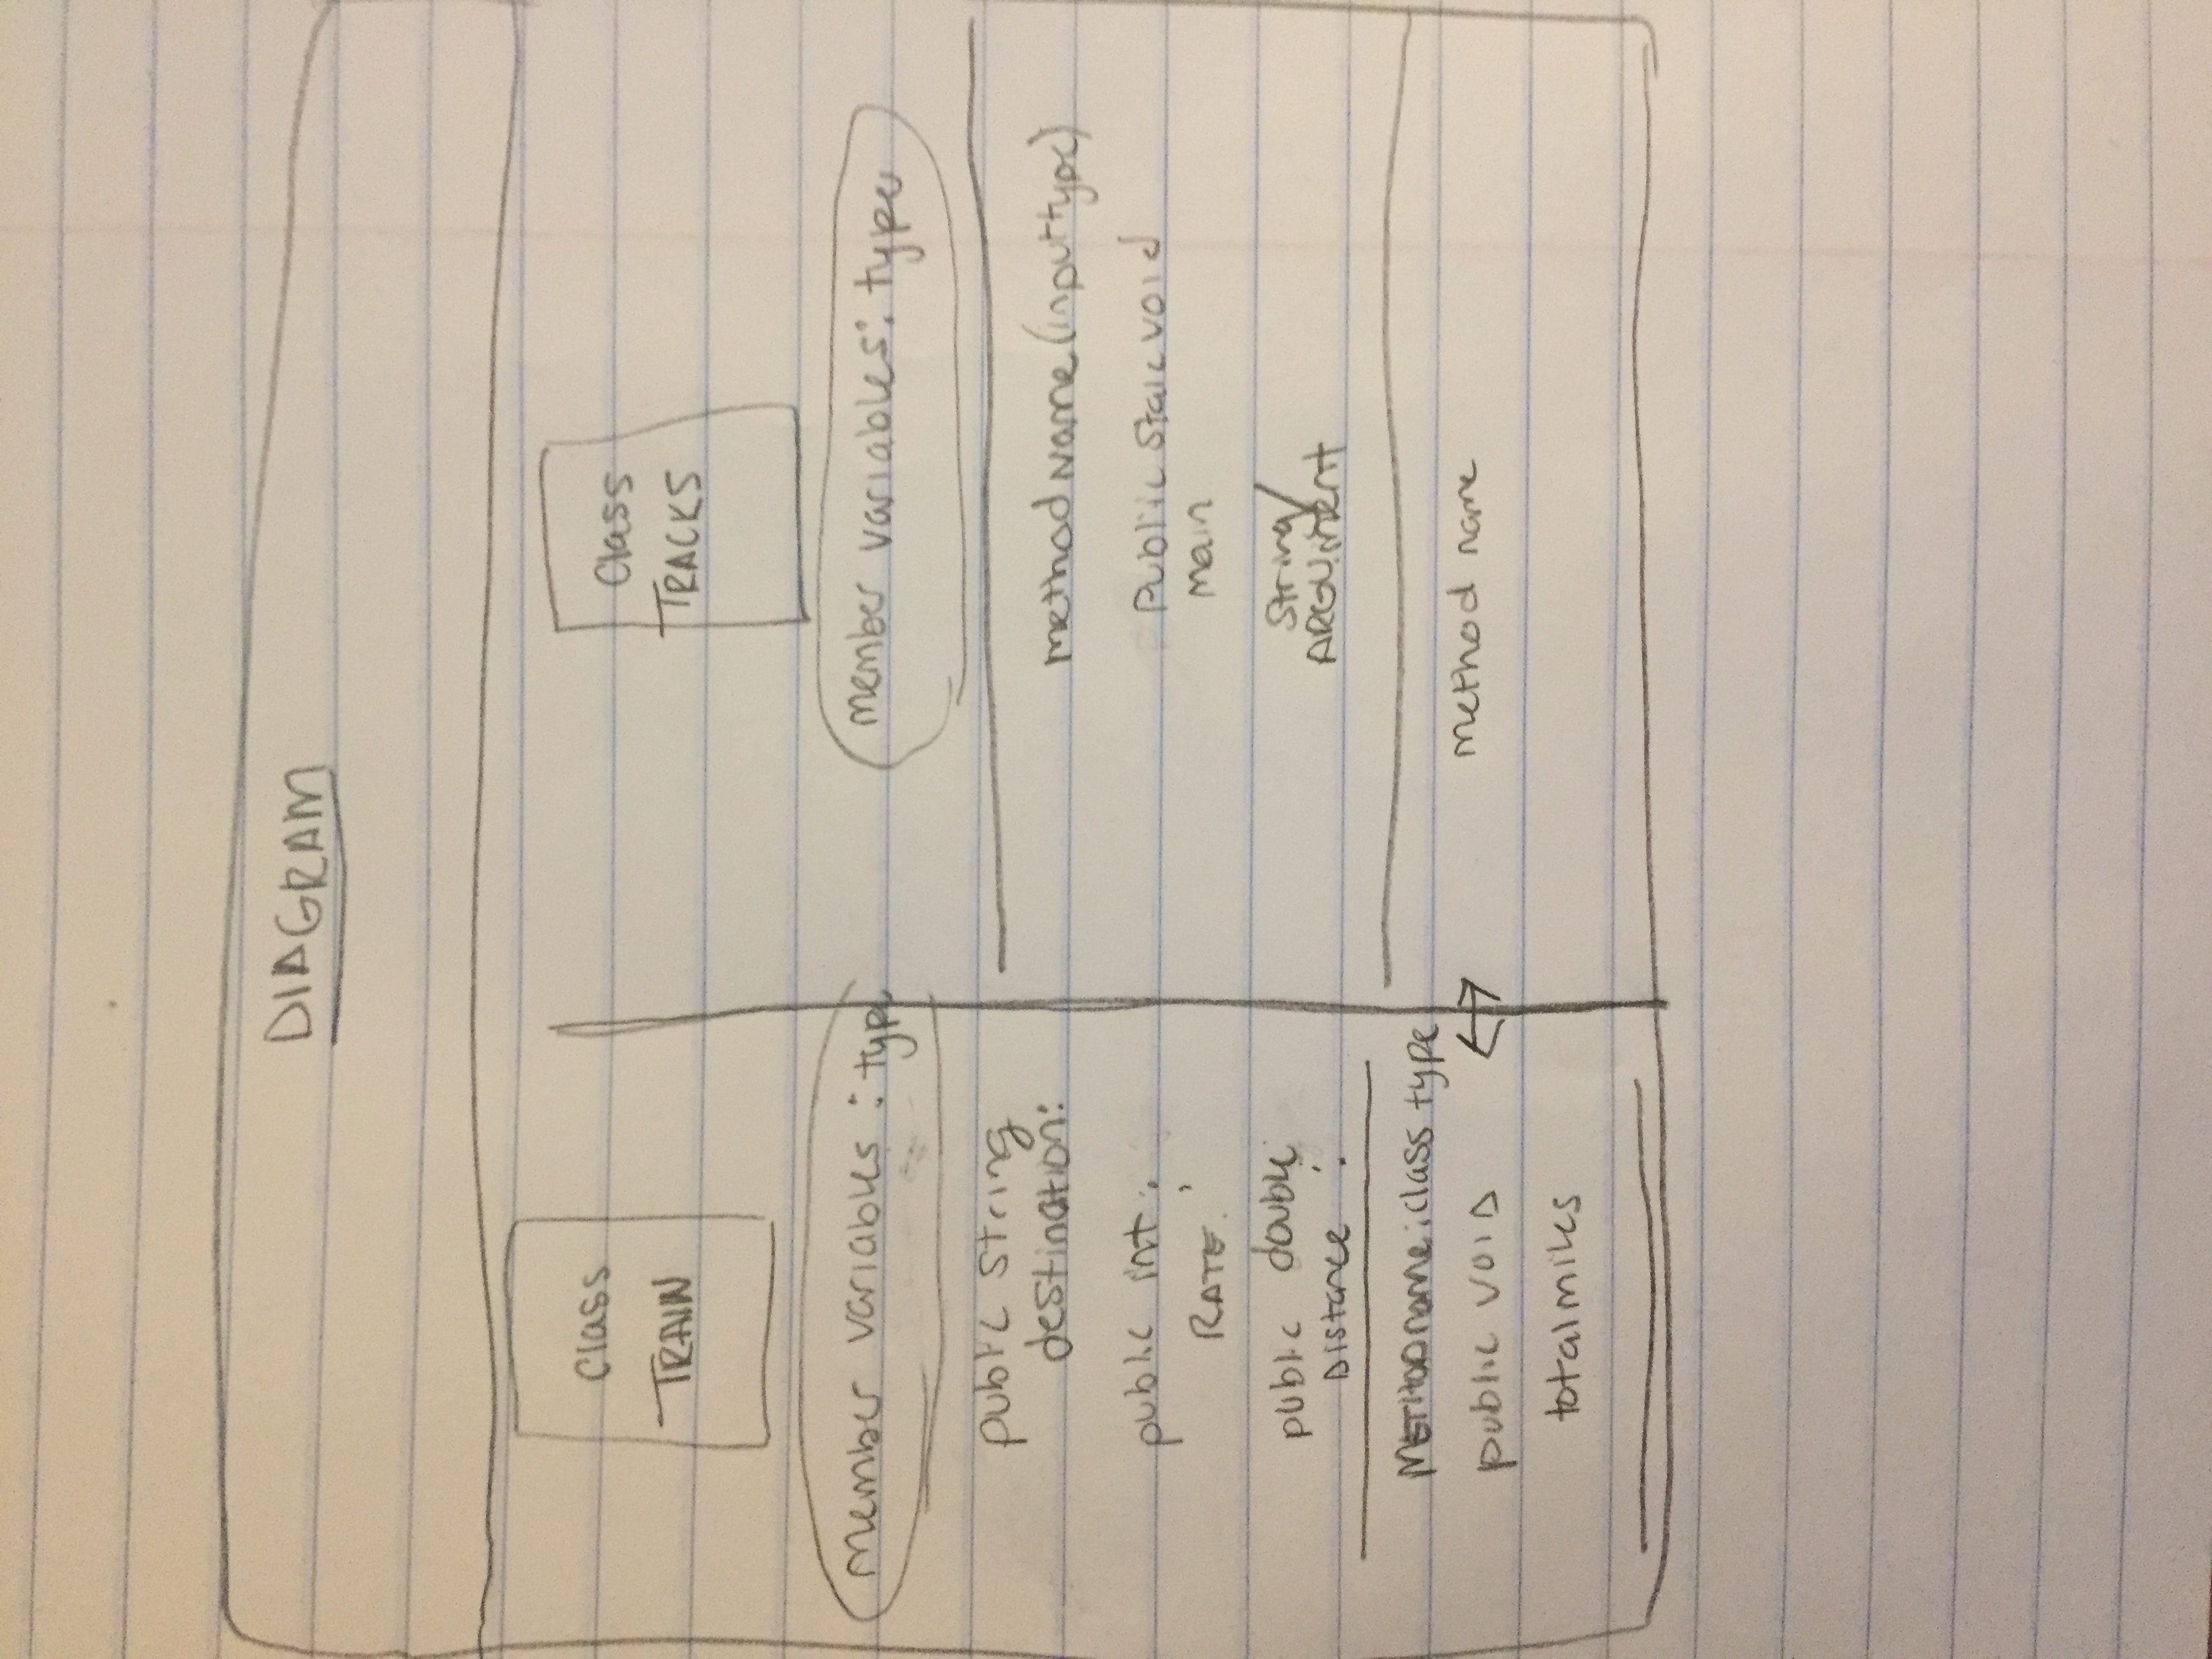 DIAGRAM
Class
TRAIN
member variables : type
public string
destination:
public int :
RATE :
public double
Distance :
METHODname: class type
public VOID
totalmiles
Class
TRACKS
member variables: type
method Name (input type)
Public Staic void
main
String/
ARGUment
method name